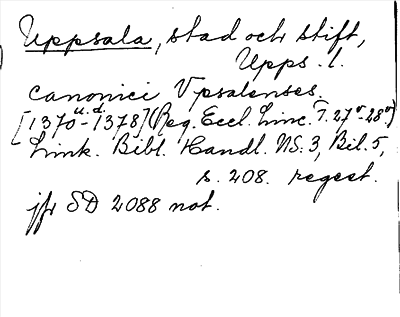 Uppsala, stad och stift,
Upps. l.
canonici Vpsalenses.
u.d.
[1370-1378] (Reg. Eccl. Linc. T. 27v-28v)
Link. Bibl. Handl. NS. 3, Bil. 5,
s. 208. regest.
jfr SD 2088 not.